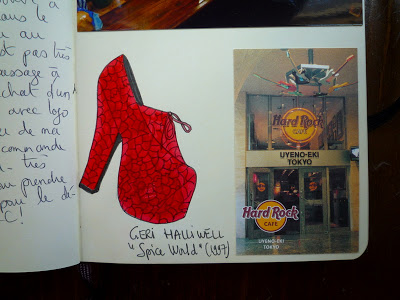 dans le
au
pas très
message à
achat d'un
avec logo
de ma
commande
très
prendre
pour le dé-
C!
GERI HALLIWELL
"Spice World" (1997)
Hard Rock
CAFE
UYENO-EKI
TOKYO
Hard Rock
CAFE
UYENO-EKI
TOKYO